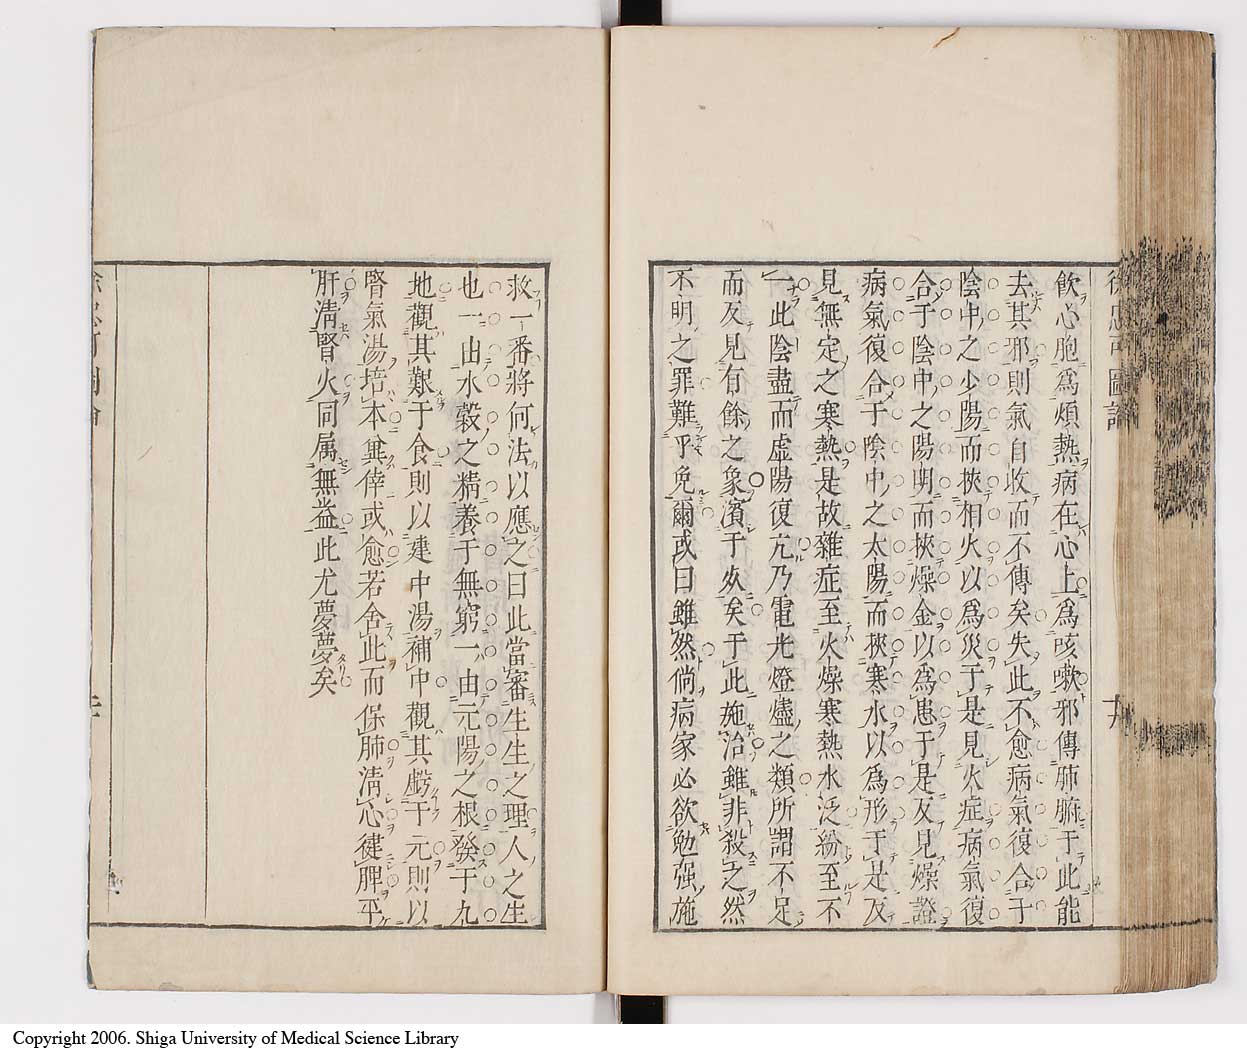 飲心胞爲煩熱病在心上爲咳嗽邪傳肺腑于此能
去其邪則氣自收而不傳矣失此不愈病氣復合于
陰中之少陽而挾相火以爲災于是見火症病氣復
合于陰中之陽明而挾燥金以爲患于是反見燥證
病氣復合于陰中之太陽而挾寒水以爲形于是反
見無定之寒熱是故雜症至火燥寒熱水泛紛至不
一此陰盡而虚陽復亢乃電光燈燼之類所謂不足
而反見有餘之象濱于危矣于此施治雖非殺之然
不明之罪難乎免爾或曰雖然倘病家必欲勉强施
救一番將何法以應之曰此當審生生之理人之生
也一由水穀之精養于無窮一由元陽之根發于九
地觀其艱于食則以建中湯補中觀其虧于元則以
腎氣湯培本兾倖或愈若舍此而保肺淸心健脾平
肝淸腎火同属無益此尤夢夢矣
十九
Copyright 2006. Shiga University of Medical Science Library